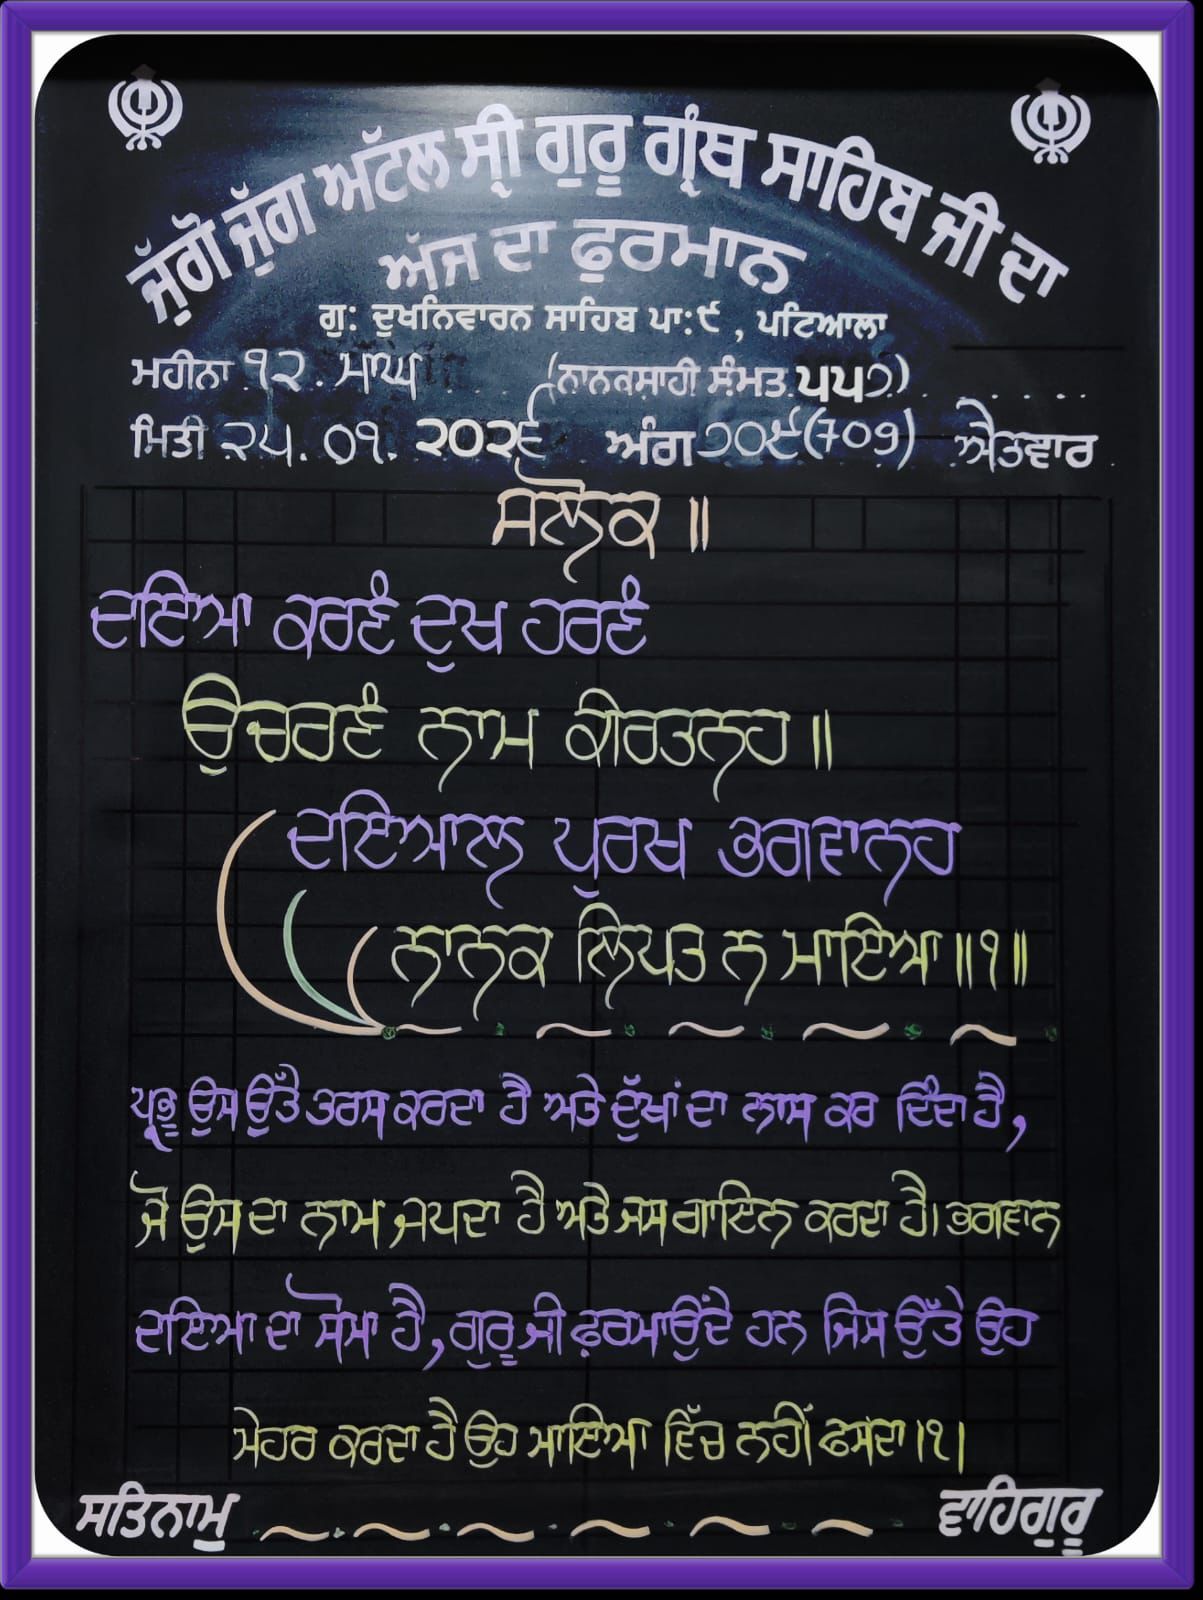 ਜੁੱਗੋ ਜੁੱਗ ਅਟੱਲ ਸ੍ਰੀ ਗੁਰੂ ਗ੍ਰੰਥ ਸਾਹਿਬ ਜੀ ਦਾ
ਅੱਜ ਦਾ ਫੁਰਮਾਨ
ਗੁ: ਦੁਖਨਿਵਾਰਨ ਸਾਹਿਬ ਪਾ:੯ , ਪਟਿਆਲਾ
ਮਹੀਨਾ ੧੨. ਮਾਘ (ਨਾਨਕਸਾਹੀ ਸੰਮਤ ੫੫੭)
ਮਿਤੀ ੨੫. 0੧. ੨੦੨੬ ਅੰਗ ੭੦੯(709) ਐਤਵਾਰ
ਸਲੋਕ ॥
ਦਇਆ ਕਰਣੰ ਦੁਖ ਹਰਣੰ
ਉਚਰਣੰ ਨਾਮ ਕੀਰਤਨਹ ॥
ਦਇਆਲ ਪੁਰਖ ਭਗਵਾਨਹ
ਨਾਨਕ ਲਿਪਤ ਨ ਮਾਇਆ ॥੧॥
ਪ੍ਰਭੂ ਉਸ ਉੱਤੇ ਤਰਸ ਕਰਦਾ ਹੈ ਅਤੇ ਦੁੱਖਾਂ ਦਾ ਨਾਸ ਕਰ ਦਿੰਦਾ ਹੈ,
ਜੋ ਉਸ ਦਾ ਨਾਮ ਜਪਦਾ ਹੈ ਅਤੇ ਜਸ ਗਾਇਨ ਕਰਦਾ ਹੈ। ਭਗਵਾਨ
ਦਇਆ ਦਾ ਸੋਮਾ ਹੈ, ਗੁਰੂ ਜੀ ਫ਼ੁਰਮਾਉਂਦੇ ਹਨ ਜਿਸ ਉੱਤੇ ਉਹ
ਮੇਹਰ ਕਰਦਾ ਹੈ ਉਹ ਮਾਇਆ ਵਿੱਚ ਨਹੀਂ ਫਸਦਾ।੧।
ਸਤਿਨਾਮੁ ਵਾਹਿਗੁਰੂ